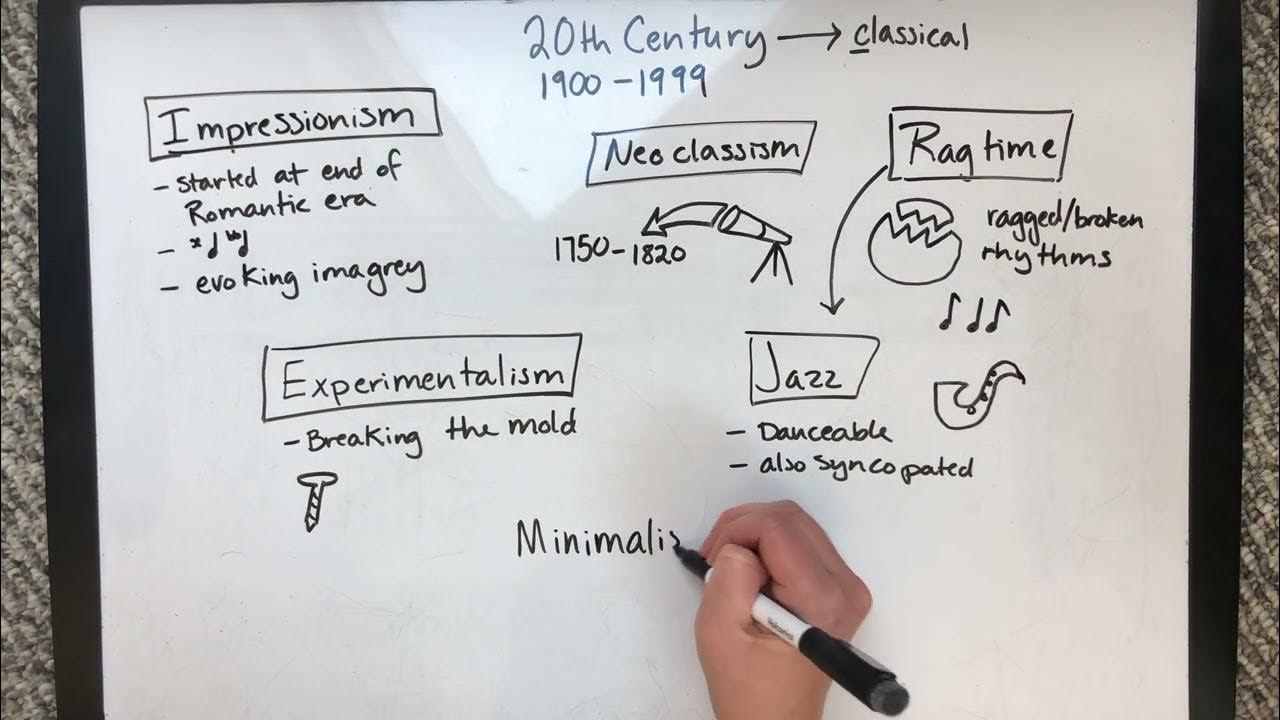 20th Century → classical
1900 – 1999
Impressionism
- started at end of
Romantic era
-
- evoking imagrey
Neoclassism
1750 – 1820
Ragtime
ragged/broken
rhythms
Experimentalism
- Breaking the mold
Jazz
- Danceable
- also syncopated
Minimalis